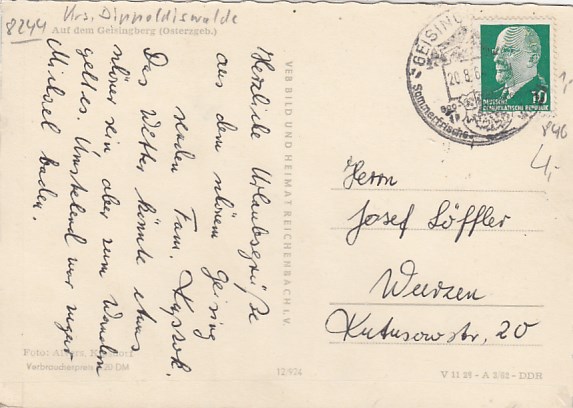 8244 Krs. Dippoldiswalde
Auf dem Geisingberg (Osterzgeb.)
Herzliche Urlaubsgrüße
aus dem schönen Geising
senden Fam.
Das Wetter könnte etwas
schöner sein, aber zum Wandern
geht es. Umstehend war
Michael baden.
Foto:
Verbraucherpreis 0,20 DM
VEB BILD UND HEIMAT REICHENBACH I. V.
12/924
GEISING
20.8.6
Sommerfrische
DEUTSCHE
DEMOKRATISCHE REPUBLIK
10
4,-
Herrn
Josef Löffler
Wurzen
Kutusowstr. 20
V 11 28 - A 2/62 - DDR